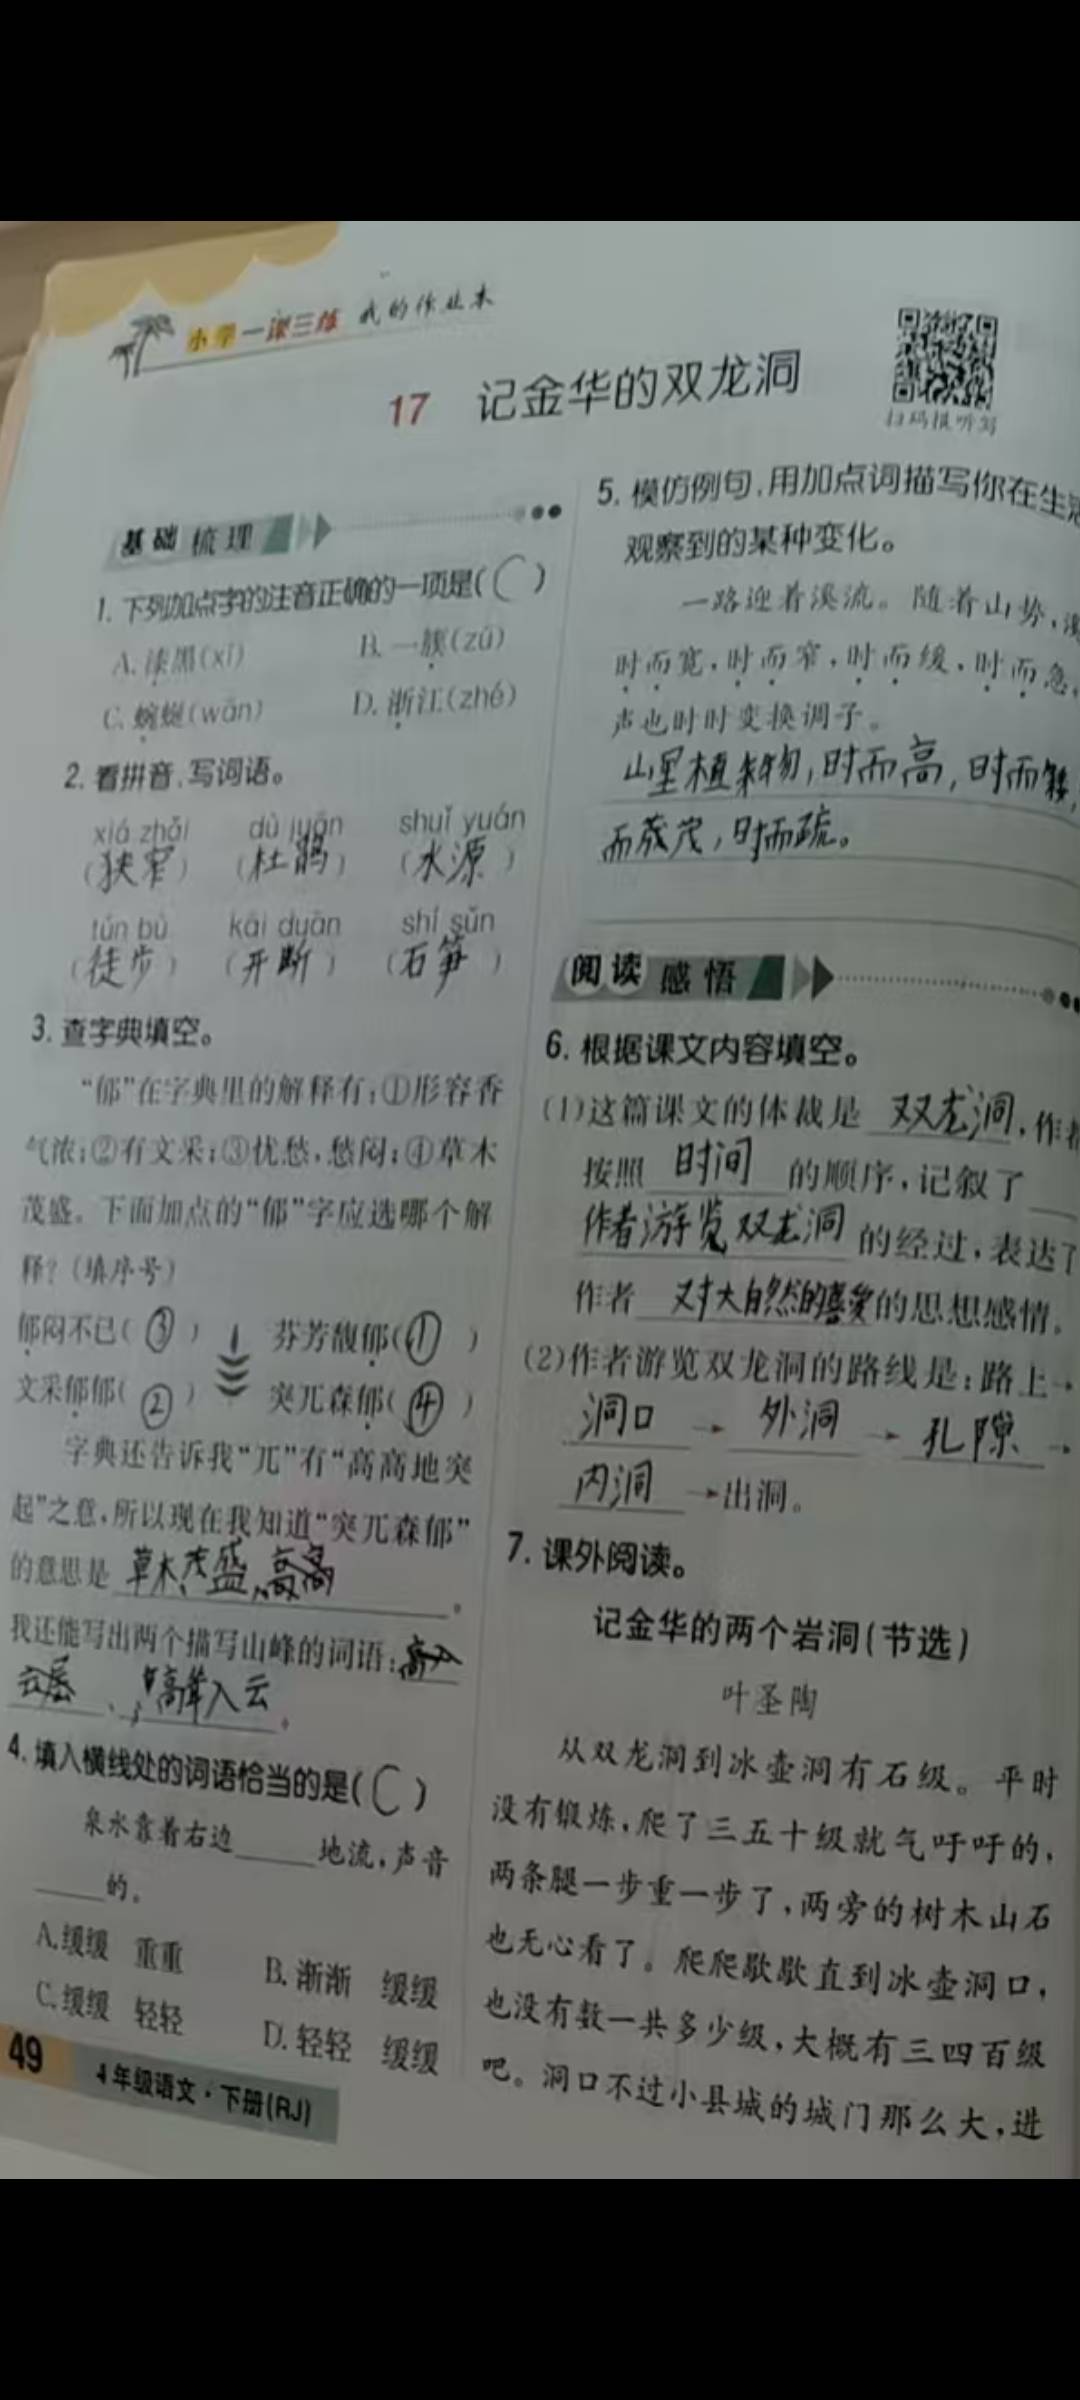 小学一课三练 我的作业本
17 记金华的双龙洞
扫码报听写
基础梳理
1. 下列加点字的注音正确的一项是(C)
A. 漆黑(xī) B. 一簇(zú)
C. 蜿蜒(wān) D. 浙江(zhé)
2. 看拼音,写词语。
xiá zhǎi dù juān shuǐ yuán
(狭窄) (杜鹃) (水源)
tún bù kāi duàn shí sǔn
(徒步) (开断) (石笋)
3. 查字典填空。
“郁”在字典里的解释有:①形容香
气浓;②有文采;③忧愁,愁闷;④草木
茂盛。下面加点的“郁”字应选哪个解
释?(填序号)
郁闷不已(③) 芬芳馥郁(①)
文采郁郁(②) 突兀森郁(④)
字典还告诉我“兀”有“高高地突
起”之意,所以现在我知道“突兀森郁”
的意思是 草木茂盛、高高 。
我还能写出两个描写山峰的词语:高入
云层 、高耸入云 。
4. 填入横线处的词语恰当的是(C)
泉水靠着右边____地流,声音
____的。
A.缓缓 重重 B.渐渐 缓缓
C.缓缓 轻轻 D.轻轻 缓缓
49
4年级语文·下册(RJ)
5. 模仿例句,用加点词描写你在生活
观察到的某种变化。
一路迎着溪流。随着山势,溪
时而宽,时而窄,时而缓,时而急,
声也时时变换调子。
山里植物,时而高,时而矮,
而茂茂,时而疏。
阅读感悟
6. 根据课文内容填空。
(1)这篇课文的体裁是 双龙洞,作者
按照 时间 的顺序,记叙了
作者游览双龙洞 的经过,表达了
作者 对大自然的喜爱的思想感情。
(2)作者游览双龙洞的路线是:路上→
洞口 → 外洞 → 孔隙 →
内洞 →出洞。
7. 课外阅读。
记金华的两个岩洞(节选)
叶圣陶
从双龙洞到冰壶洞有石级。平时
没有锻炼,爬了三五十级就气吁吁的,
两条腿一步重一步了,两旁的树木山石
也无心看了。爬爬歇歇直到冰壶洞口,
也没有数一共多少级,大概有三四百级
吧。洞口不过小县城的城门那么大,进